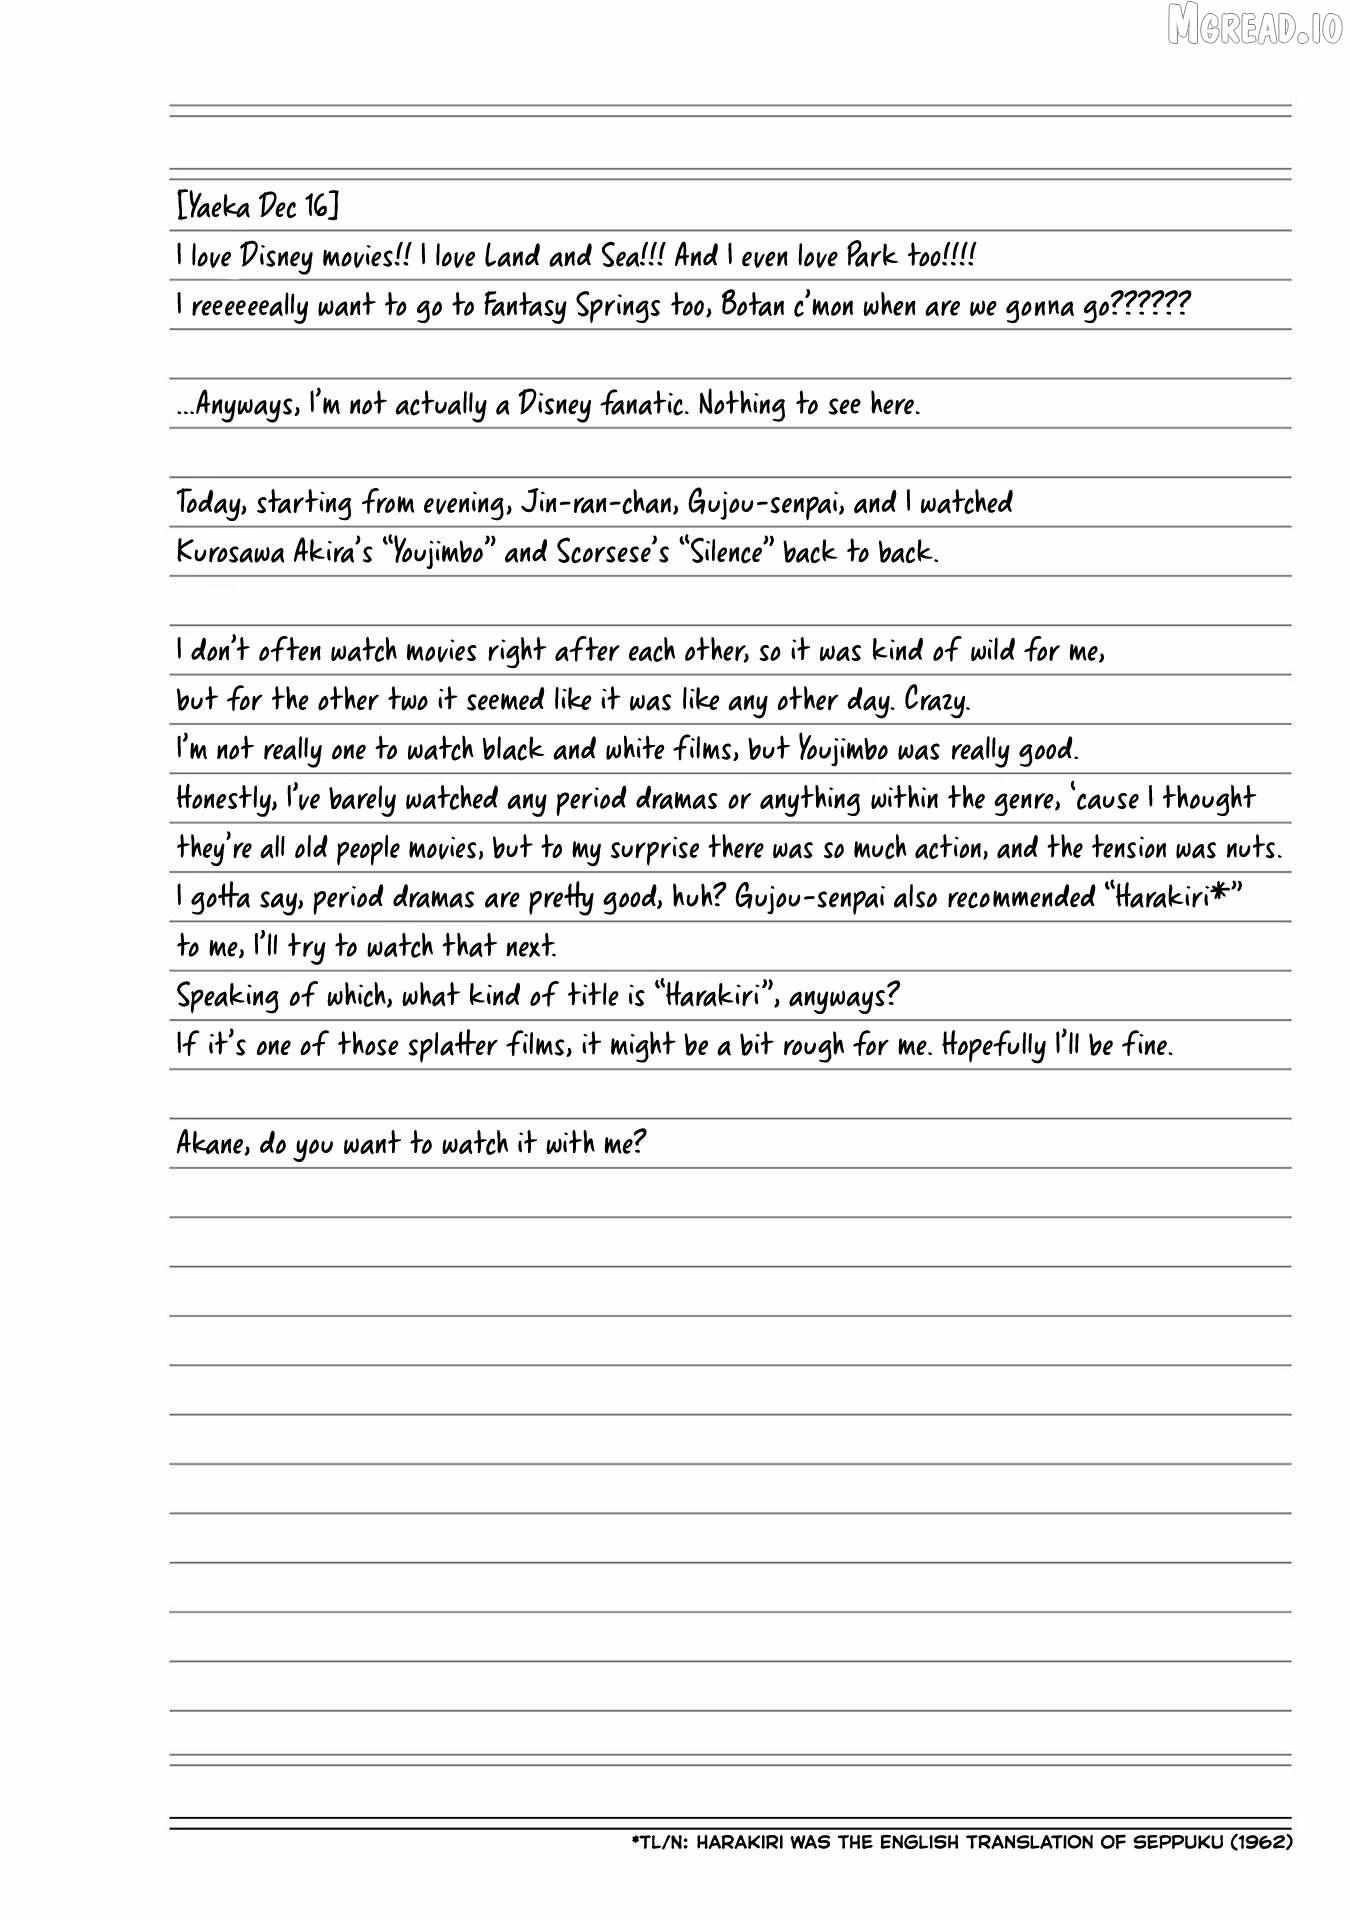 MGREAD.IO
[Yaeka Dec 16]
I love Disney movies!! I love Land and Sea!!! And I even love Park too!!!!
I reeeeeeally want to go to Fantasy Springs too, Botan c'mon when are we gonna go??????
...Anyways, I'm not actually a Disney fanatic. Nothing to see here.
Today, starting from evening, Jin-ran-chan, Gujou-senpai, and I watched
Kurosawa Akira's "Youjimbo" and Scorsese's "Silence" back to back.
I don't often watch movies right after each other, so it was kind of wild for me,
but for the other two it seemed like it was like any other day. Crazy.
I'm not really one to watch black and white films, but Youjimbo was really good.
Honestly, I've barely watched any period dramas or anything within the genre, 'cause I thought
they're all old people movies, but to my surprise there was so much action, and the tension was nuts.
I gotta say, period dramas are pretty good, huh? Gujou-senpai also recommended "Harakiri*"
to me, I'll try to watch that next.
Speaking of which, what kind of title is "Harakiri", anyways?
If it's one of those splatter films, it might be a bit rough for me. Hopefully I'll be fine.
Akane, do you want to watch it with me?
*TL/N: HARAKIRI WAS THE ENGLISH TRANSLATION OF SEPPUKU (1962)